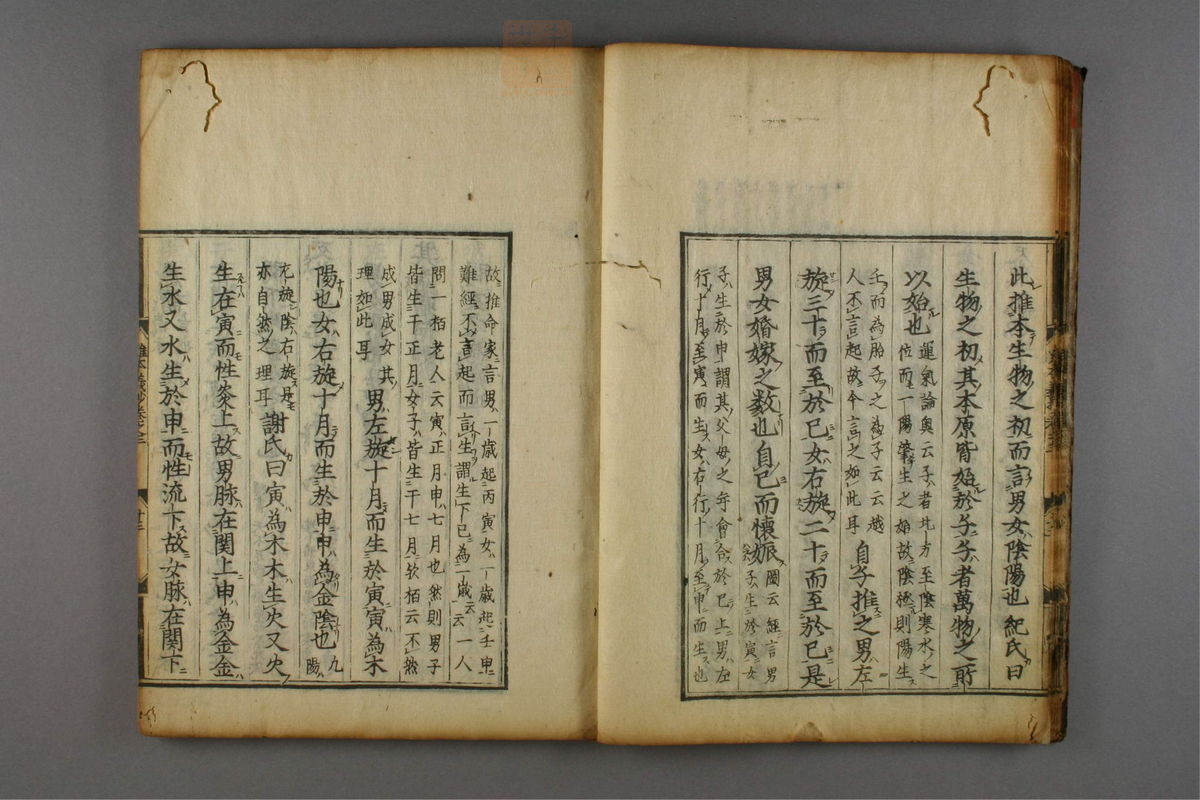 此推本生物之初而言男女陰陽也紀氏曰
生物之初其本原皆始於子子者萬物之所
以始也
運氣論奥云子者北方至陰寒水之
位而一陽肇生之始故陰極則陽生
壬而為胎子之為子云云越
人不言起故今言之如此耳
自子推之男左
旋三十而至於巳女右旋二十而至於巳是
男女婚嫁之數也自巳而懷娠
圖云經言男
子生於寅女
子生於申謂其父母之年會合於巳上男左
行十月至寅而生女右行十月至申而生也
故推命家言男一歳起丙寅女一歳起壬申
難經不言起而言生謂生下已為一歳云云一人
問一栢老人云寅正月申七月也然則男子
皆生于正月女子皆生于七月欤栢云不然
成男成女其
理如此耳
男左旋十月而生於寅寅為木
陽也女右旋十月而生於申申為金陰也
九陽
左旋陰右旋是
亦自然之理耳
謝氏曰寅為木木生火又火
生在寅而性炎上故男脉在関上申為金金
生水又水生於申而性流下故女脉在関下
難本義鈔卷之三
十三